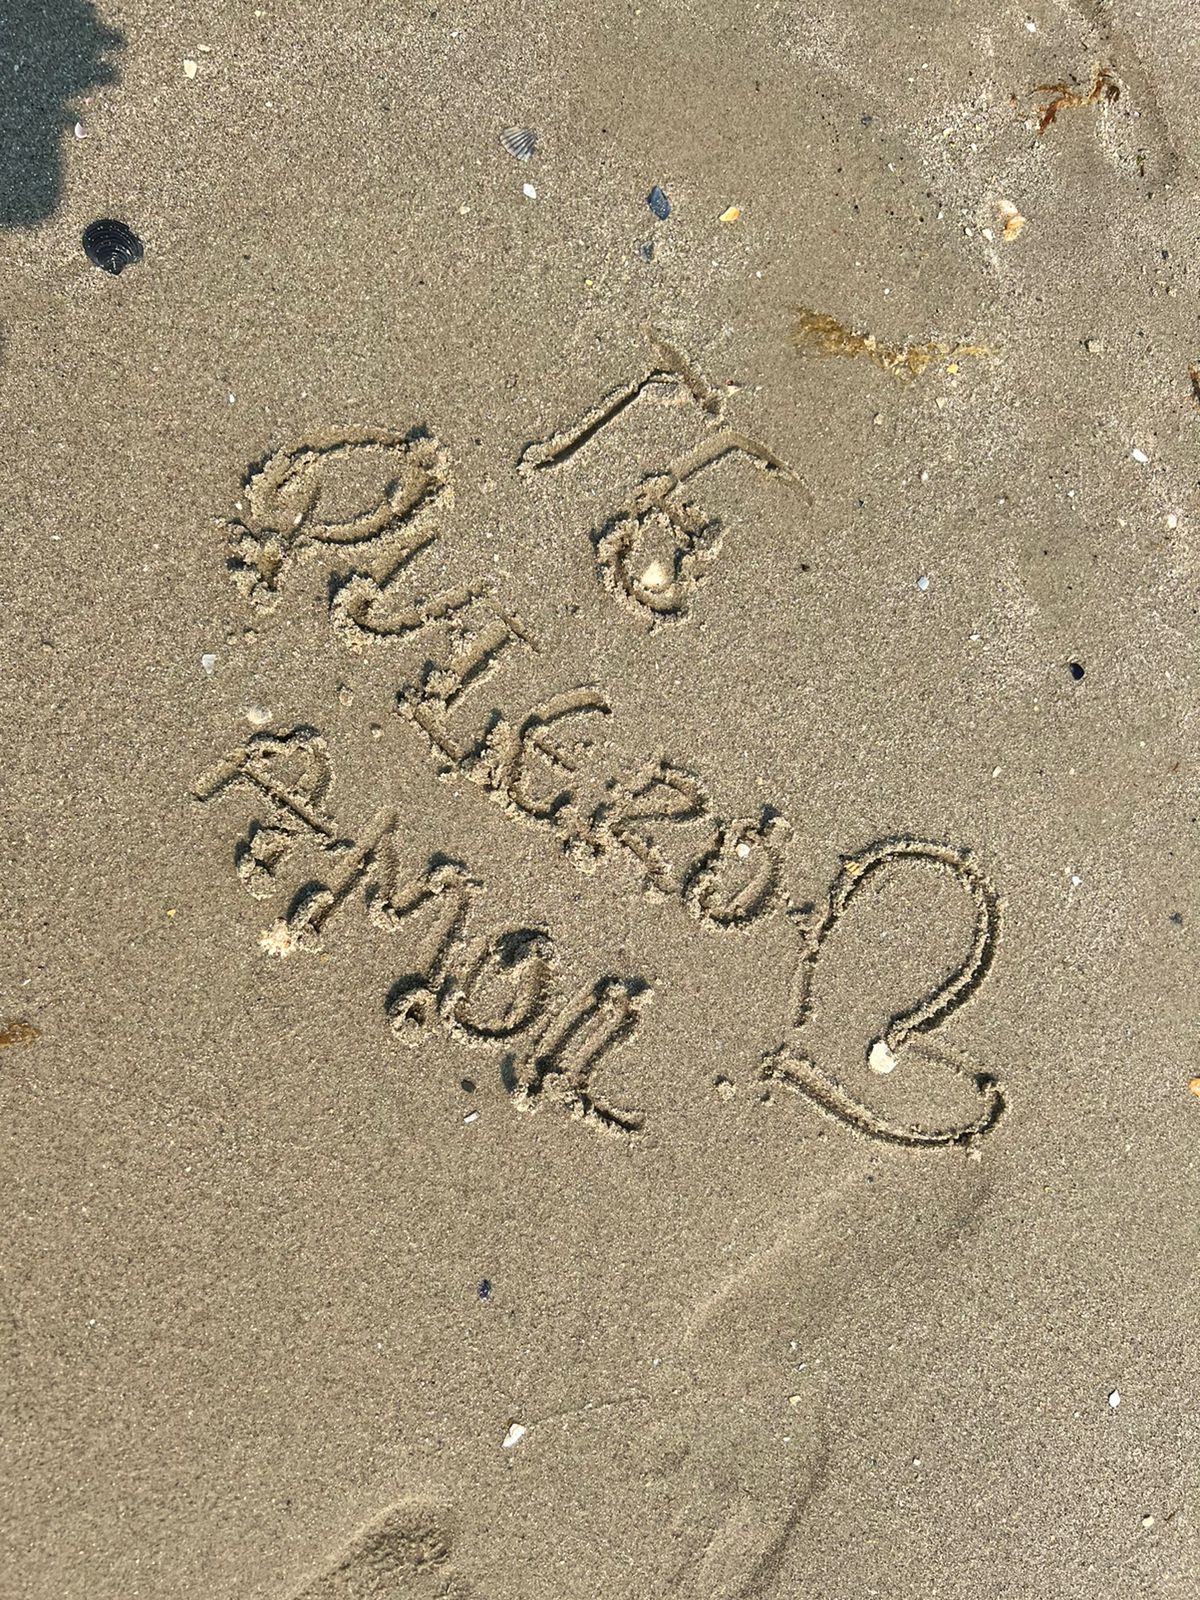 TE
QUIERO
AMOR